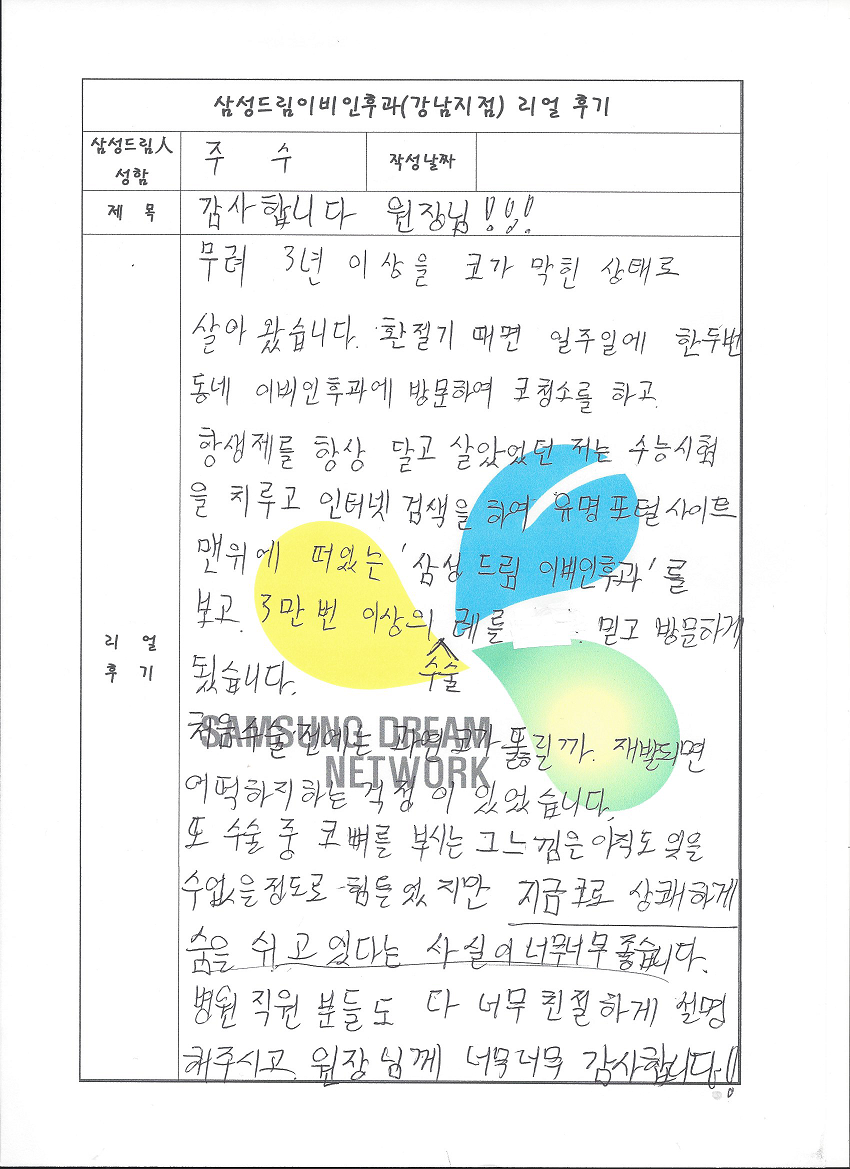 삼성드림이비인후과(강남지점) 리얼 후기
삼성드림人 성함
주 수
작성날짜
제 목
감사합니다 원장님!!!
리 얼 후 기
무려 3년 이상을 코가 막힌 상태로
살아 왔습니다. 환절기 때면 일주일에 한두번
동네 이비인후과에 방문하여 코청소를 하고.
항생제를 항상 달고 살았었던 저는 수능시험
을 치루고 인터넷 검색을 하여 유명 포털사이트
맨위에 떠있는 '삼성 드림 이비인후과'를
보고. 3만 번 이상의 수술 례를 믿고 방문하게
됬습니다.
처음수술 전에는 과영 코가 뚫릴까. 재발되면
어떡하지하는 걱정이 있었습니다.
또 수술 중 코뼈를 부시는 그느낌은 아직도 잊을
수없을정도로 힘들었지만 지금코로 상쾌하게
숨을 쉬고 있다는 사실이 너무너무 좋습니다.
병원 직원 분들도 다 너무 친절하게 설명
해주시고. 원장님께 너무너무 감사합니다!!
SAMSUNG DREAM
NETWORK